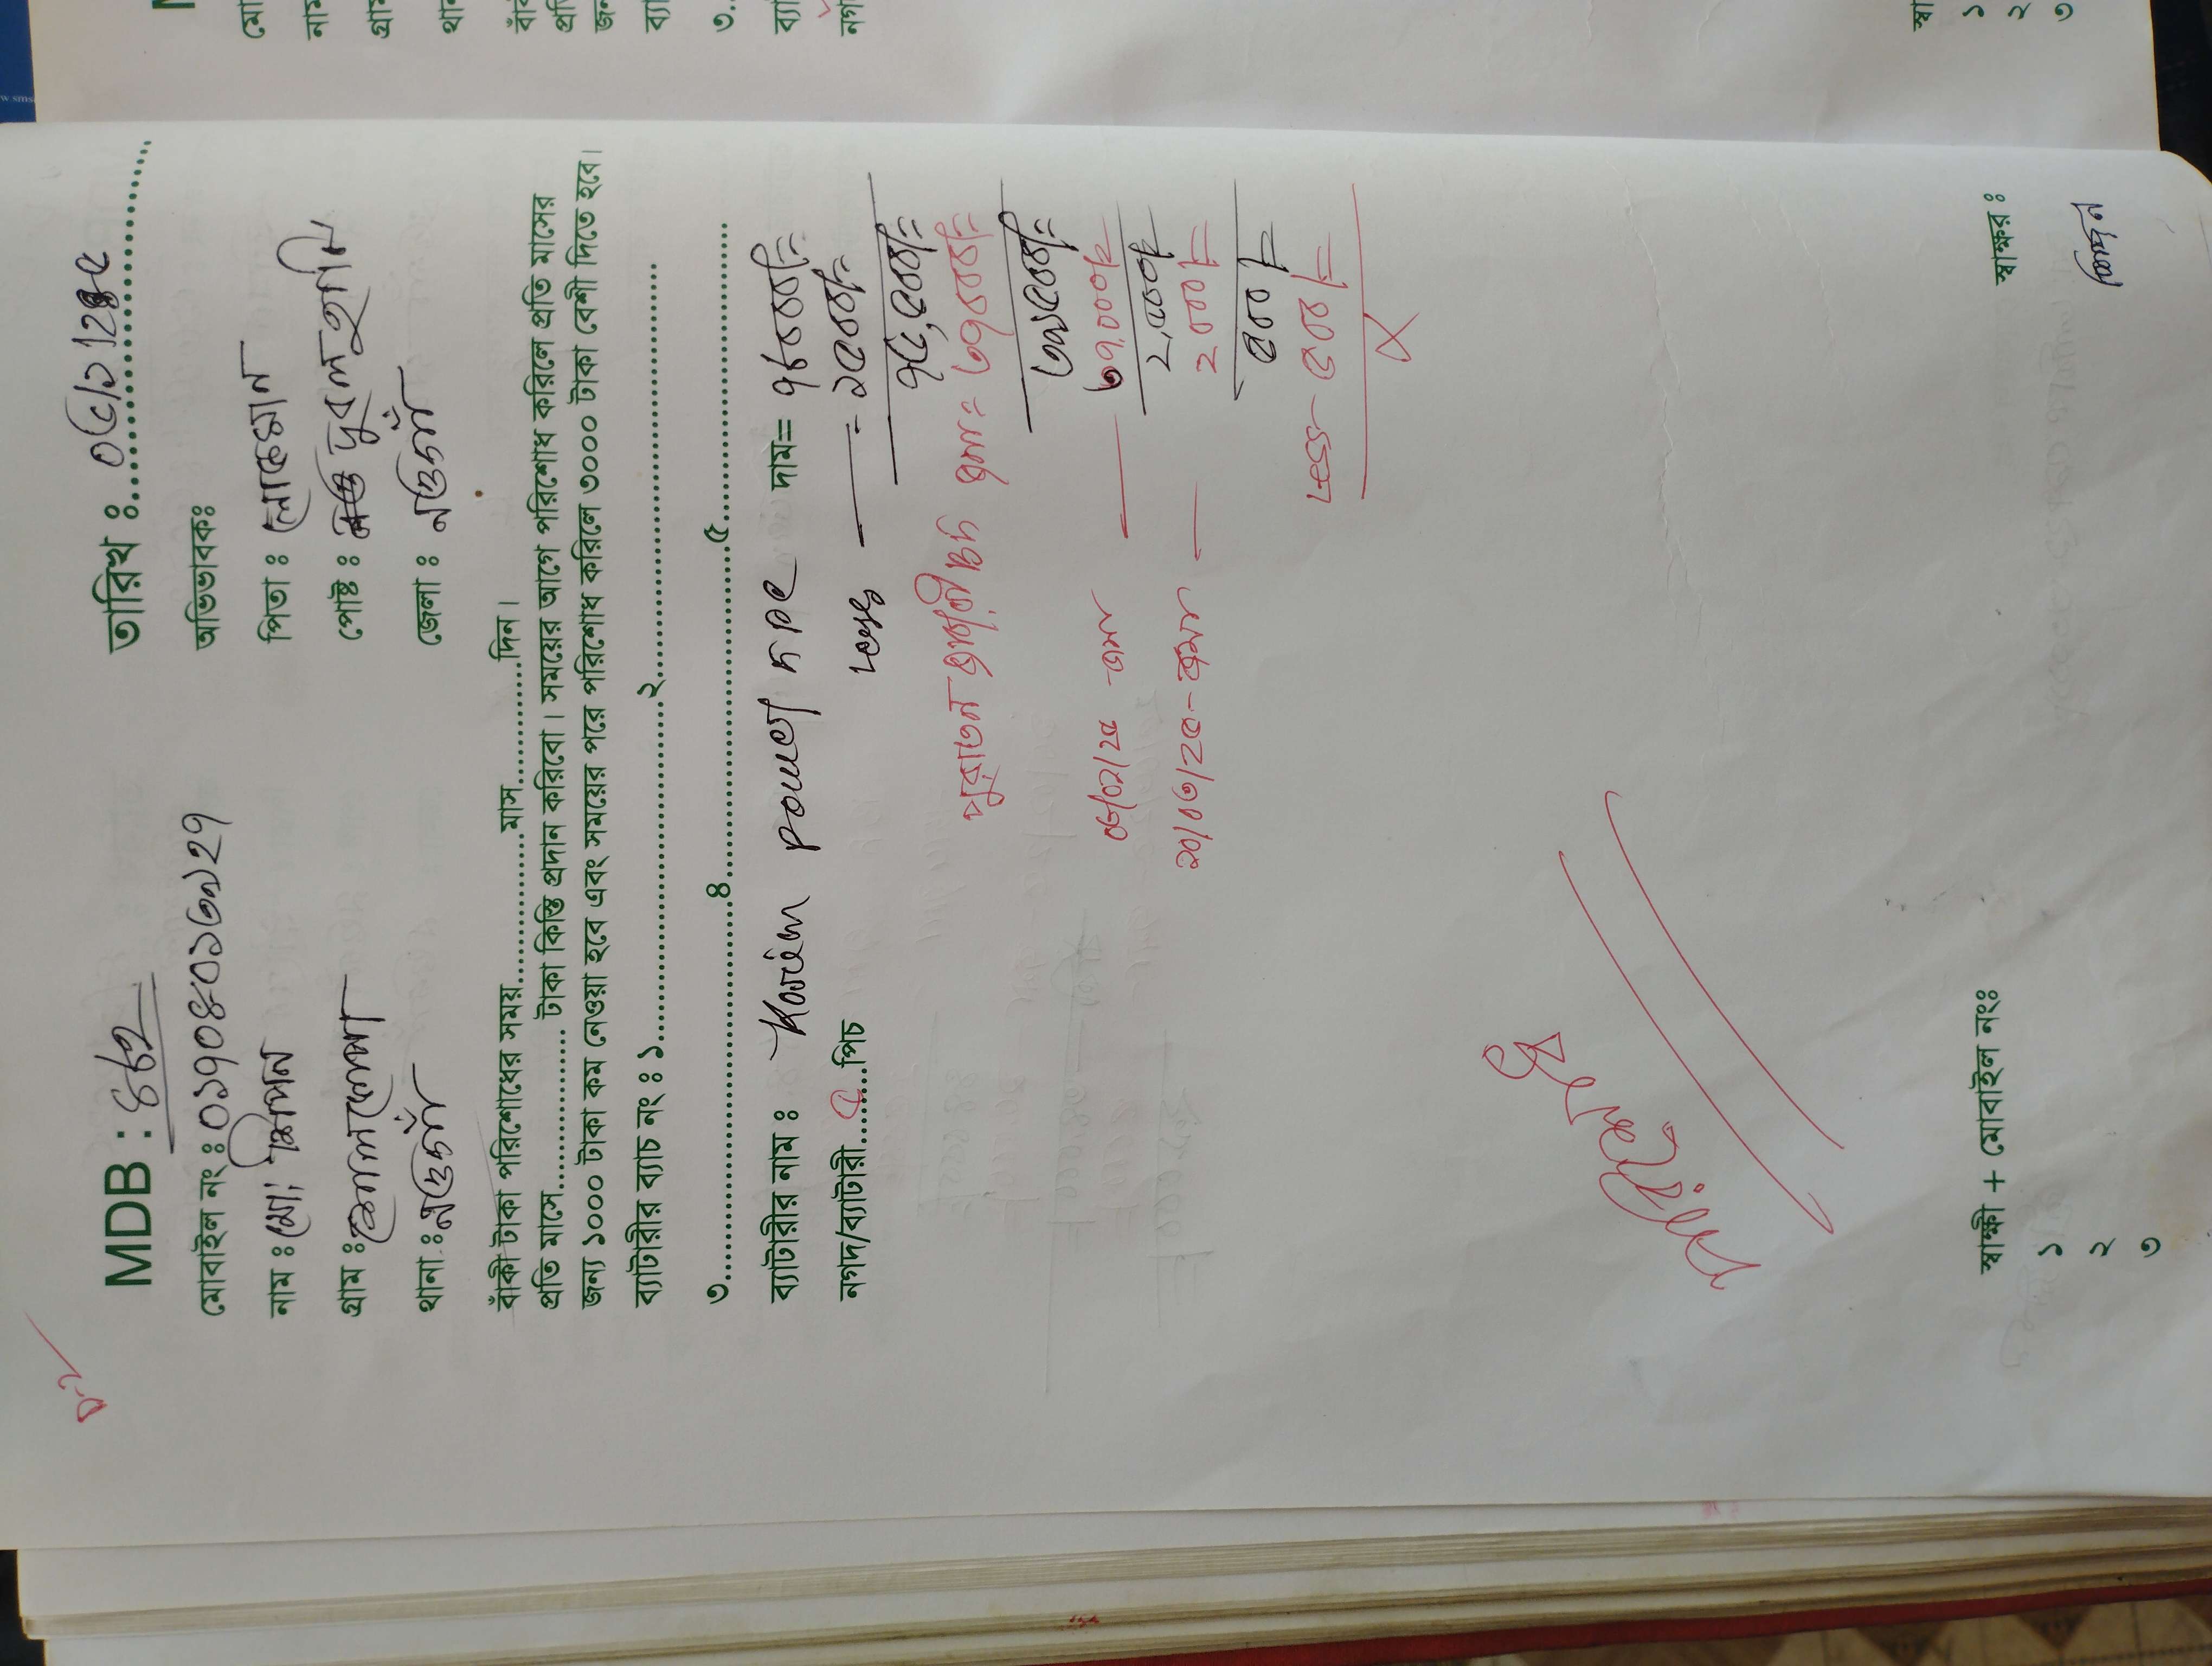 MDB : ৪৬২ তারিখ ঃ ০৫/১/২৫
মোবাইল নং ঃ ০১৭০৪০১৩৯২৭ অভিভাবকঃ
নাম ঃ মো: লিপন পিতা ঃ লোকমান
গ্রাম ঃ পোষ্ট ঃ দুবলহাটি
থানা ঃ নওগাঁ জেলা ঃ নওগাঁ
বাঁকী টাকা পরিশোধের সময়..............মাস..............দিন।
প্রতি মাসে.............. টাকা কিস্তি প্রদান করিবো। সময়ের আগে পরিশোধ করিলে প্রতি মাসের
জন্য ১০০০ টাকা কম নেওয়া হবে এবং সময়ের পরে পরিশোধ করিলে ৩০০০ টাকা বেশী দিতে হবে।
ব্যাটারীর ব্যাচ নং ঃ ১..............২..............
৩..............৪..............৫..............
ব্যাটারীর নাম ঃ Karim power দাম= ৭৮০০০/=
নগদ/ব্যাটারী..৫..পিচ Less — = ১৫০০/=
৭৬,৫০০/=
পুরাতন ব্যাটারী = ৩৭০০০/=
৩৯৫০০/=
০৬/০২/২৫ - জমা — ৩৭,০০০/=
২,৫০০/=
২০/০৩/২৫ - জমা — ২০০০/=
৫০০/=
Less - ৫০০/=
X
পরিশোধ
স্বাক্ষী + মোবাইল নংঃ স্বাক্ষর ঃ
১ লিপন
২
৩